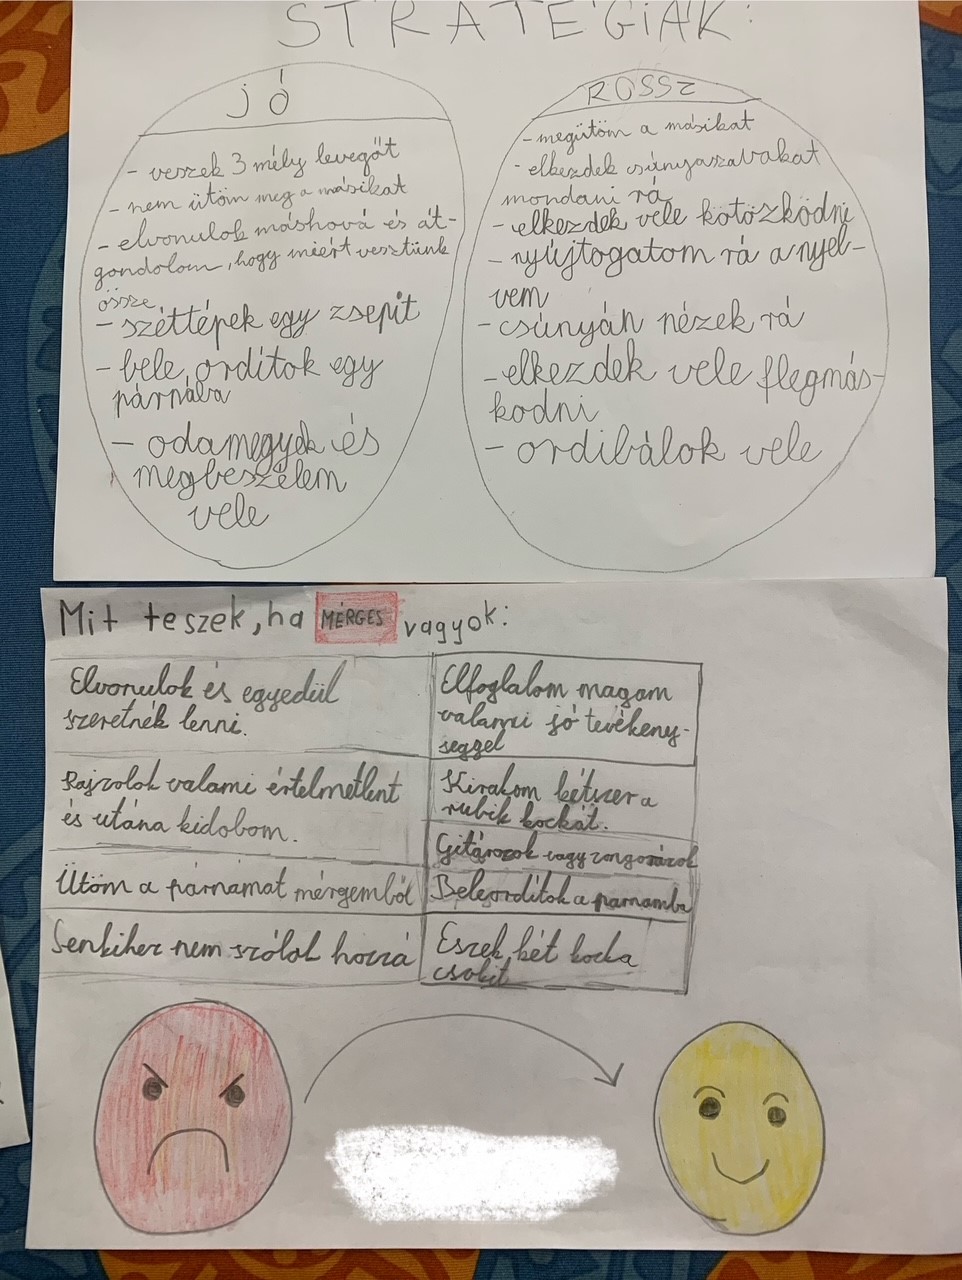 STRATÉGIÁK:
JÓ
- veszek 3 mély levegőt
- nem ütöm meg a másikat
- elvonulok máshová és át-
gondolom, hogy miért vesztünk
össze
- széttépek egy zsepit
- bele ordítok egy
párnába
- odamegyek és
megbeszélem
vele
ROSSZ
- megütöm a másikat
- elkezdek csúnyaszavakat
mondani rá
- elkezdek vele kötözködni
- nyújtogatom rá a nyel-
vem
- csúnyán nézek rá
- elkezdek vele flegmás-
kodni
- ordibálok vele
Mit teszek, ha MÉRGES vagyok:
Elvonulok és egyedül
szeretnék lenni.
Rajzolok valami értelmetlent
és utána kidobom.
Ütöm a párnámat mérgemből
Senkihez nem szólok hozzá
Elfoglalom magam
valami jó tevékeny-
séggel
Kirakom kétszer a
rubik kockát.
Gitározok vagy zongorázok
Beleordítok a párnámba
Eszek két kocka
csokit